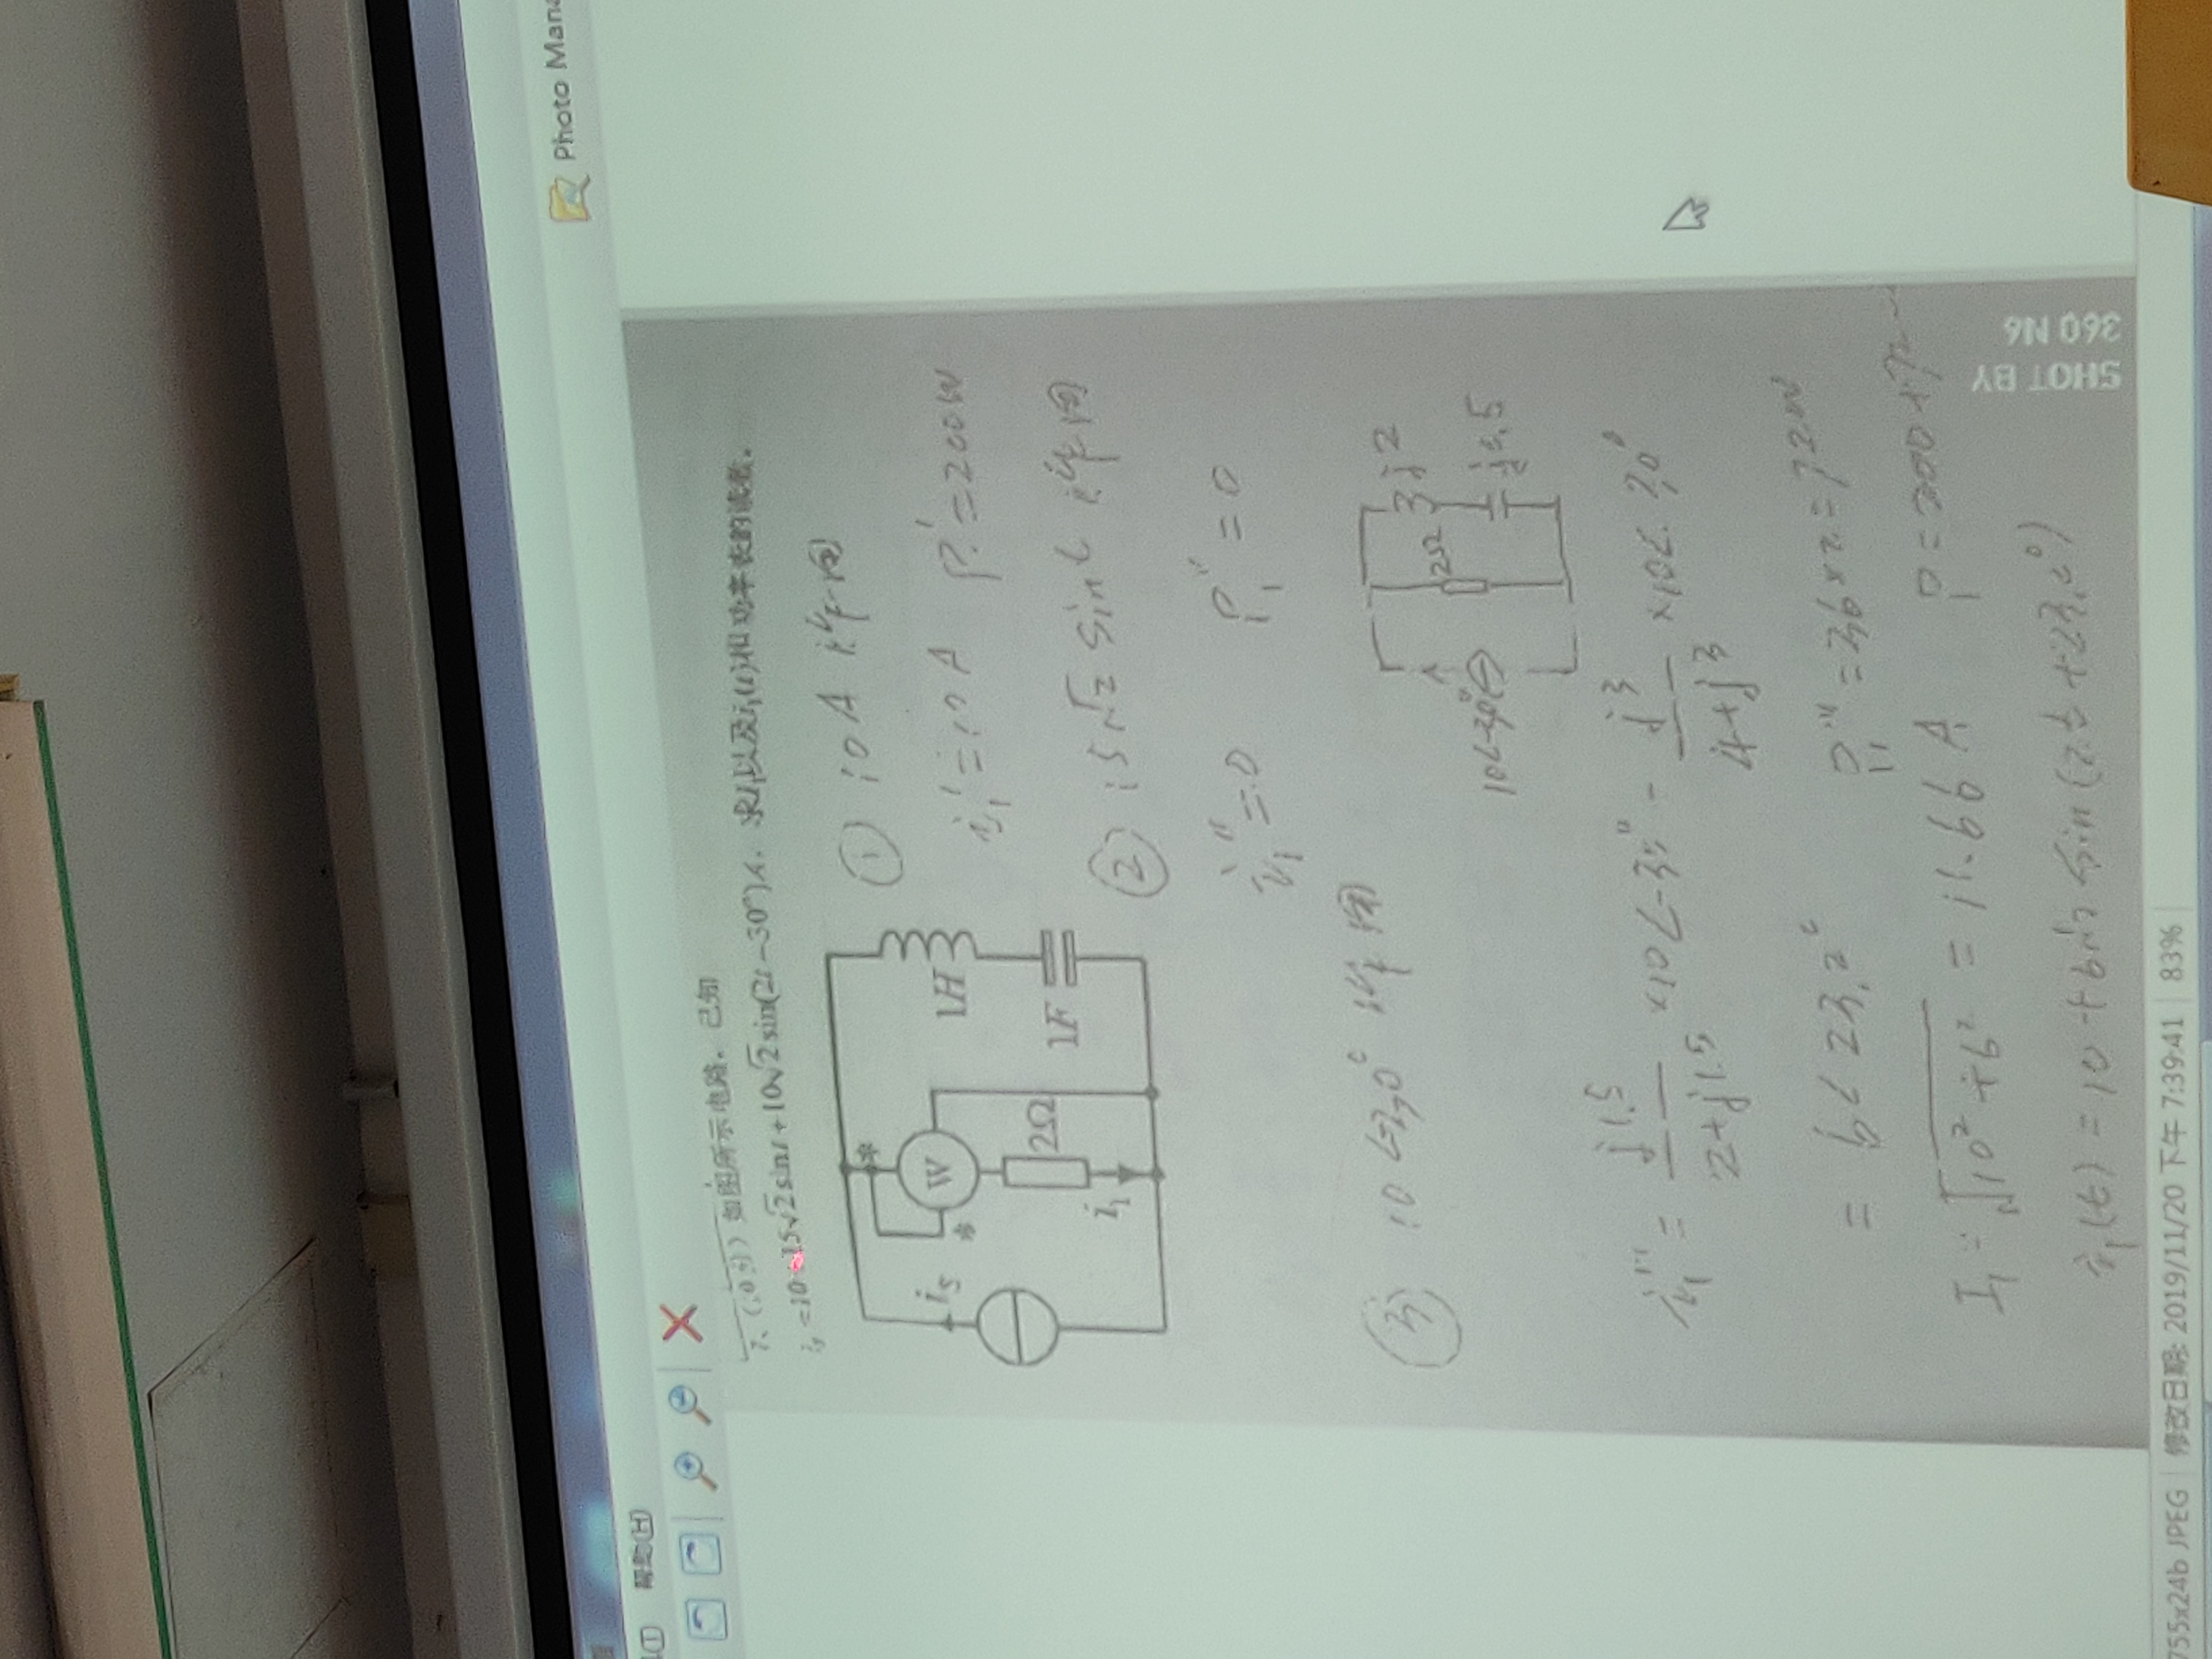 Photo Mana
帮助(H)
7、(10分) 如图所示电路。已知
i_s=10+15√2sint+10√2sin(2t-30°)A. 求I₁以及i₁(t)和功率表的读数。
*
i_S
W
*
1H
2Ω
1F
i₁
① 10A 作用
i₁'=10A P₁'=200W
② 15√2 sint 作用
i₁''=0 P₁''=0
③ 10∠-30° 作用
j2
2Ω
10∠-30°
j0.5
i₁'''= j1.5/2+j1.5 ×10∠-30° = j3/4+j3 ×10∠-30°
= 6∠23.2° P₁'''=36×2=72W
I₁=√10²+6² = 11.66 A P=200+72
i₁(t) = 10+6√2 sin(2t+23.2°)
SHOT BY
360 N6
755x24b JPEG 修改日期: 2019/11/20 下午 7:39:41 83%